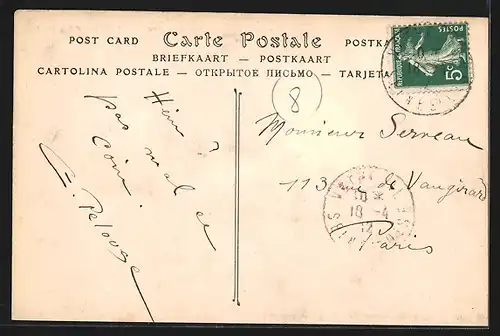 POST CARD Carte Postale POSTKA
BRIEFKAART — POSTKAART
CARTOLINA POSTALE — ОТКРЫТОЕ ПИСЬМО — TARJETA
POSTES
REPUBLIQUE FRANÇAISE
5c
8
Hein?
pas mal ce
coin.
E. Pelouze
Monsieur Serveau
113 rue de Vaugirard
Paris
18-4
12